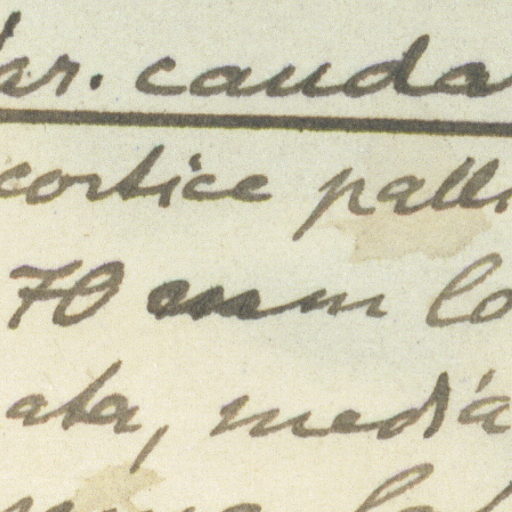 var. cauda
cortice palli
70 mm lo
ata, media